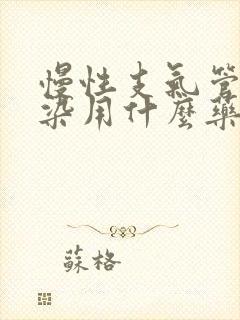 慢性支氣管
染用什麼藥
蘇格